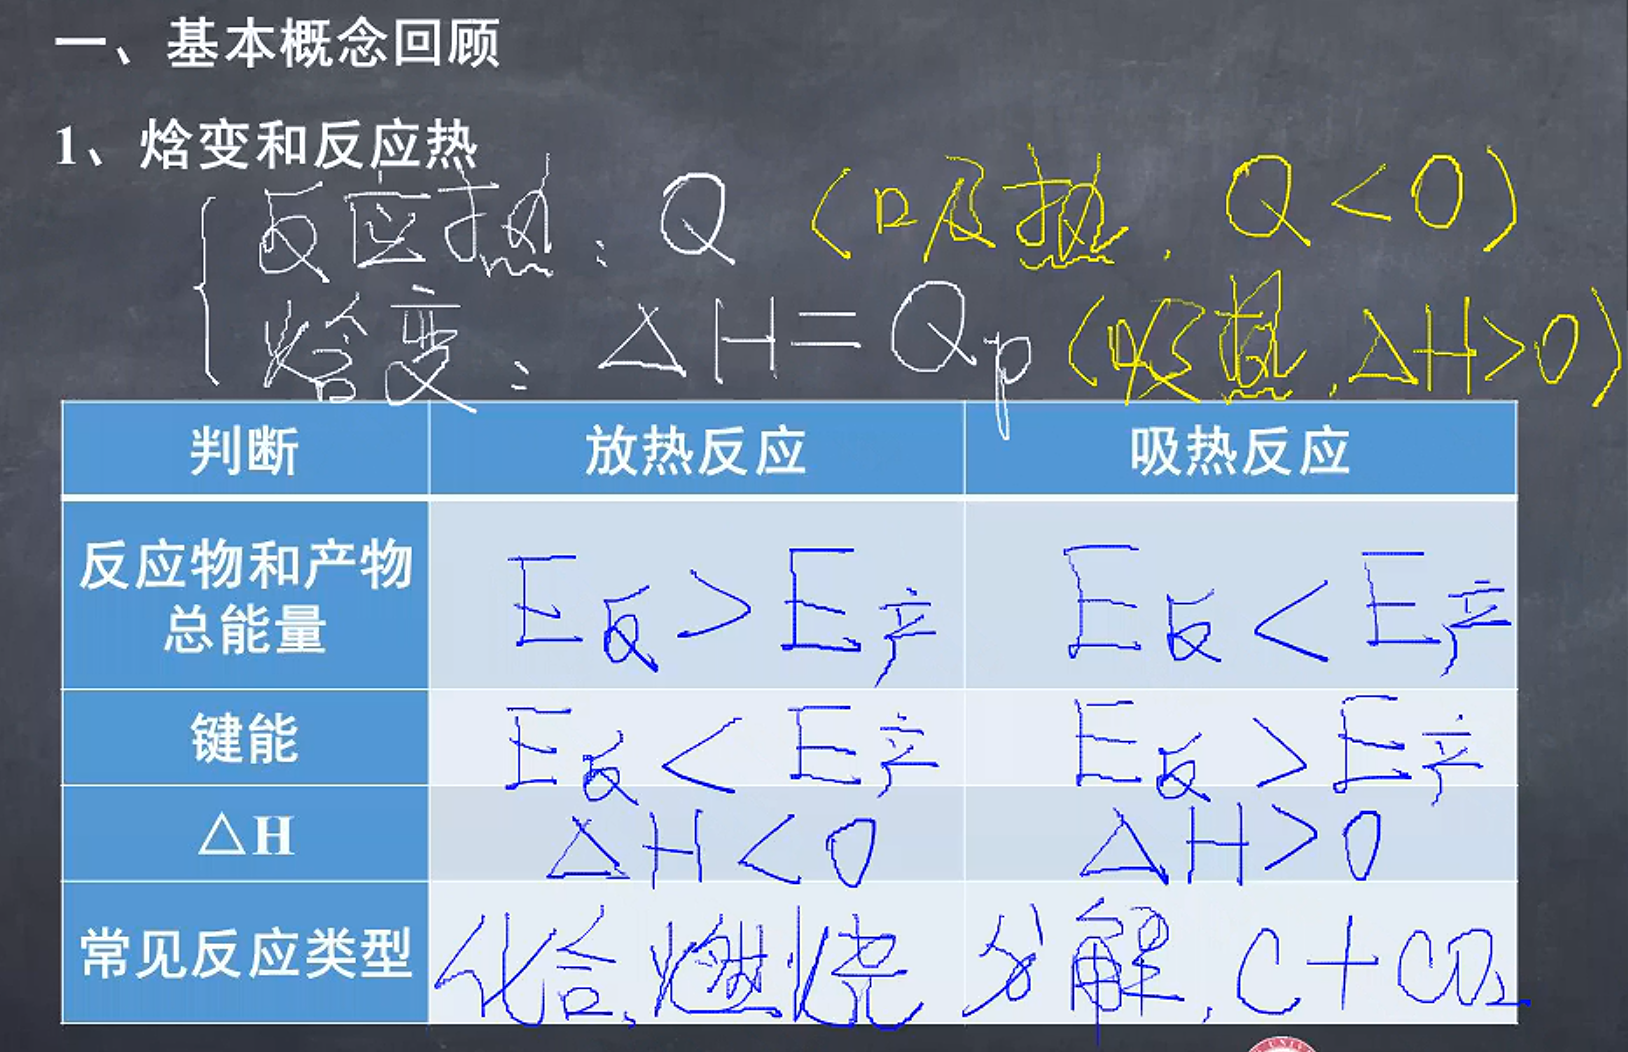 一、基本概念回顾
1、焓变和反应热
反应热：Q（吸热，Q<0）
焓变：△H=Qp（吸热，△H>0）
判断 放热反应 吸热反应
反应物和产物总能量 E反>E产 E反<E产
键能 E反<E产 E反>E产
△H △H<0 △H>0
常见反应类型 化合、燃烧 分解，C+CO2